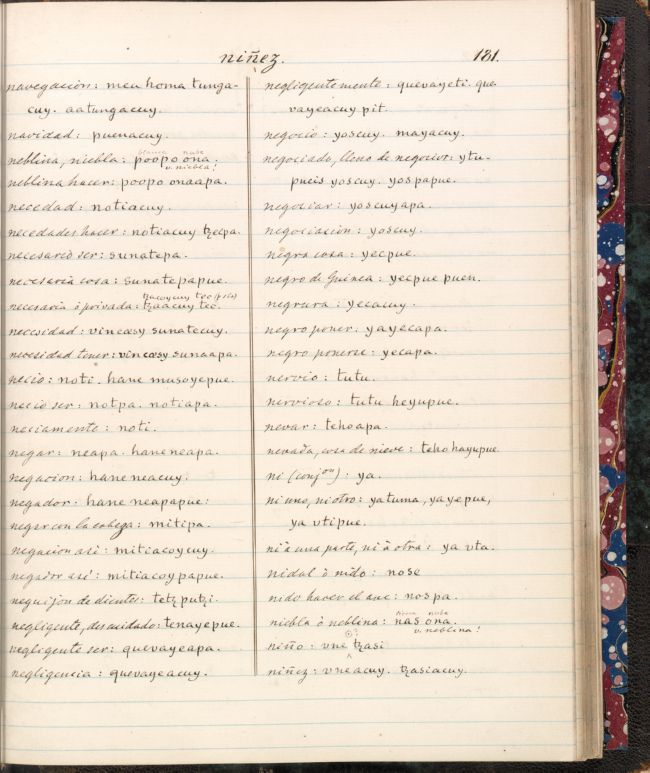 niñez.
181.
navegacion: meu homa tunga-
cuy. aatungacuy.
navidad: puenacuy.
blanca nube
neblina, niebla: poopo ona.
v. niebla!
neblina hacer: poopo onaapa.
necedad: notiacuy.
necedades hacer: notiacuy tzecpa.
necesario ser: sunatepa.
necesaria cosa: sunatepapue.
necesaria ò privada: tzaacuy tec.
necesidad: vincæsy sunatecuy.
necesidad tener: vincæsy sunaapa.
necio: noti. hane musoyepue.
necio ser: notpa. notiapa.
neciamente: noti.
negar: neapa. haneneapa.
negacion: haneneacuy.
negador: hane neapapue:
negar con la cabeza: mitipa.
negacion asi: mitiacoycuy.
negador asi: mitiacoypapue.
neguijon de dientes: tetz putzi.
negligente, descuidado: tenayepue.
negligente ser: quevayeapa.
negligencia: quevayeacuy.
negligentemente: quevayeti. que
vayeacuy pit.
negocio: yoscuy. mayacuy.
negociado, lleno de negocios: ytu-
pueis yoscuy. yospapue.
negociar: yoscuyapa.
negociacion: yoscuy.
negra cosa: yecpue.
negro de Guinea: yecpue puen.
negrura: yecacuy.
negro poner: yayecapa.
negro ponerse: yecapa.
nervio: tutu.
nervioso: tutu heyupue.
nevar: tehoapa.
nevada, cosa de nieve: teho hayupue.
ni (conjon): ya.
ni uno, ni otro: yatuma, yayepue,
ya vtipue.
ni à una parte, ni à otra: ya vta.
nidal ò nido: nose
nido hacer el ave: nospa.
nube
niebla ò neblina: nas ona.
v. neblina!
niño: vne tzasi
niñez: vneacuy. tzasiacuy.